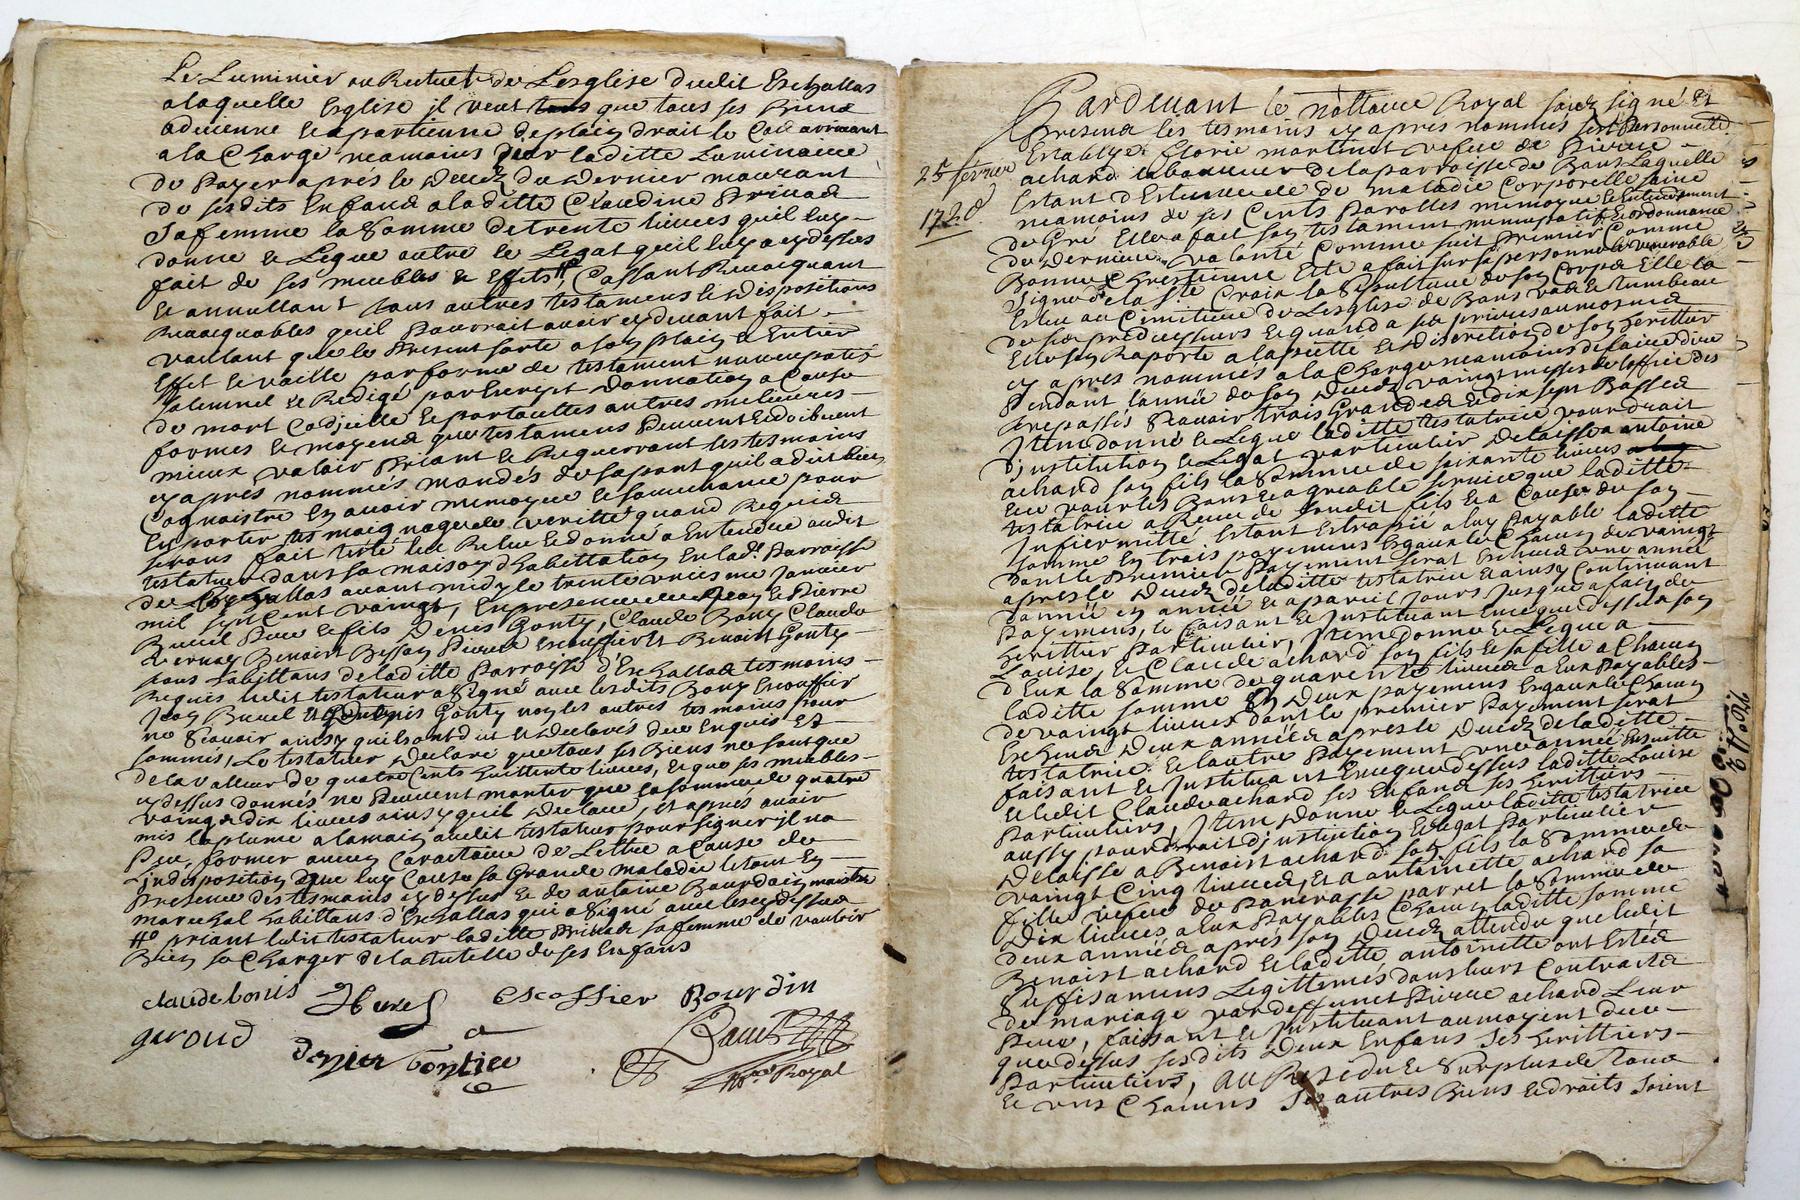 Le Luminier ou Recteur de Lesglise dudit Eschallas
a laquelle Esglise il veut que tous ses Biens
advienne Et apartienne de plain droit le Cas arrivant
a la Charge neamoins par laditte Luminaire
de Payer aprés le decez du Dernier mourant
de sesdits Enfans a laditte Claudine
Sa femme la Somme de trente livres quil luy
donne & Legue outre le Legat quil luy a cy dessus
fait de ses meubles & Effets, Cassant Revocquant
Et annullant tous autres testamens & Dispositions
Revocquables quil Pourroit avoir cy devant fait
voullant que le Present sorte a son plain & Entier
Effet & vaille par forme de testament nuncupatif
Solemnel & Redigé par Escript donnation a Cause
de mort Codicille & par touttes autres melieures
formes & moyens que testamens Peuvent & doibvent
mieux valoir Priant & Requerrant les tesmoins
cy apres nommés mandés de sa part quil a dit bien
Cognoistre En avoir memoyre & souvenance pour
En porter tesmoignage de veritté quand Requis
seront fait Leu Releu & donné a Entendre audit
testateur dans sa maison dhabittation En lad. Parroisse
de avant midy le trente uniesme Janvier
mil sept Cent vaingt, En presence de Jean & Pierre
Pere & fils Denis Gonty, Claude Bony Claude
Vernay Benoist Besson Pierre Benoist Gonty
tous habittans de laditte Parroisse d'Eschallas tesmoins
Requis ledit testateur a Signé avec lesdits Bony
Jean & Denis Gonty non les autres tesmoins pour
ne Sçavoir ainsy quils ont dit & declarés de ce Enquis Et
sommés, Le testateur declare que tous ses Biens ne sont que
de la valleur de quatre Cents livres, & que ses meubles
cy dessus donnés ne Peuvent monter que la somme de quatre
vaingt dix livres ainsy quil declare, Et aprés avoir
mis la plume a la main audit testateur pour signer il na
Peu former aucun Caractaire de Lettre a Cause de
Lindisposition que luy Cause sa Grande maladie le tout En
presence des tesmoins cy dessus & de antoine Bourdin maitre
mareschal habittant d'Eschallas qui a Signé avec les cy dessus
priant ledit testateur laditte sa femme de vouloir
Bien se Charger de la tutelle de ses Enfans
claude bonis escossier Bourdin
giroud
denis gontier
Royal
25 février
1720
Pardevant le nottaire Royal souz signé Et
Presens les tesmoins cy apres nommés fut Personnelle.
Establye florie martinet vefve de Pierre
achard laboureur de la parroisse de Bans Laquelle
Estant detenue de maladie Corporelle saine
neamoins de ses Cents Parolles memoyre & Entendement
de Gré Elle a fait son testament nuncupatif & ordonnance
de derniere volonté Comme suit Premier Comme
Bonne Chrestienne Elle a fait sur sa personne le venerable
Signe de la Ste Croix la Sepulture de son Corps Elle la
Esleu au Cimetiere de Lesglise de Bans & tumbeau
de ses predecesseurs & quand a ses prieres aumosnes
Elle sen Raporte a la pietté & discretion de son heritier
cy apres nommés a la Charge neamoins de faire dire
Pendant lannée de son decez vaingt messes de loffice des
trepassés Sçavoir trois Grandes & dix sept Basses
Item donne & Legue laditte testatrice par droit
d'institution & Legat particulier delaisse a antoine
achard son fils la Somme de soixante livres
Et ce pour les Bons & agreable service que laditte
testatrice a Receu de sondit fils Et a Cause de son
Infirmitté Estant Estropié a luy Payable laditte
somme En trois payemens Esgaux & Chacun de vaingt
dont le Premier Payement Serat Escheu une année
apres le decez de laditte testatrice & ainsy Continuant
dannée En année & a pareil Jours Jusque a fain de
Payemens, le faisant & Instituant En ce que dessus son
heritier Particulier, Item donne & Legue a
Louise, & Claude achard Son fils & sa fille a Chacun
d'Eux la Somme de quarente livres a Eux Payables
laditte somme En deux payemens Esgaux & Chacun
de vaingt livres dont le premier Payement serat
Escheu deux années apres le decez de laditte
testatrice & lautre Payement une année Ensuitte
faisant & Instituant En ce que dessus laditte Louise
& ledit Claude achard ses Enfans ses herittiers
Particuliers, Item donne & Legue laditte testatrice
aussy par droit d'institution & Legat Particulier
delaisse a Benoist achard son fils la Somme de
vaingt Cinq livres, Et a antoinette achard sa
fille vefve de Pancrasse parret la Somme de
Dix livres a Eux Payables Chacun laditte somme
deux années aprés son decez attendu que ledit
Benoist achard & laditte antoinette ont Estés
Suffisamens Legittimés dans leurs Contracts
de mariage par deffunct Pierre achard Leur
Pere, faisant & Instituant au moyent de ce
que dessus sesdits deux Enfans Ses herittiers
Particuliers, au Residu & Surplus de tous
& uns Chacuns Ses autres Biens & droits Soient